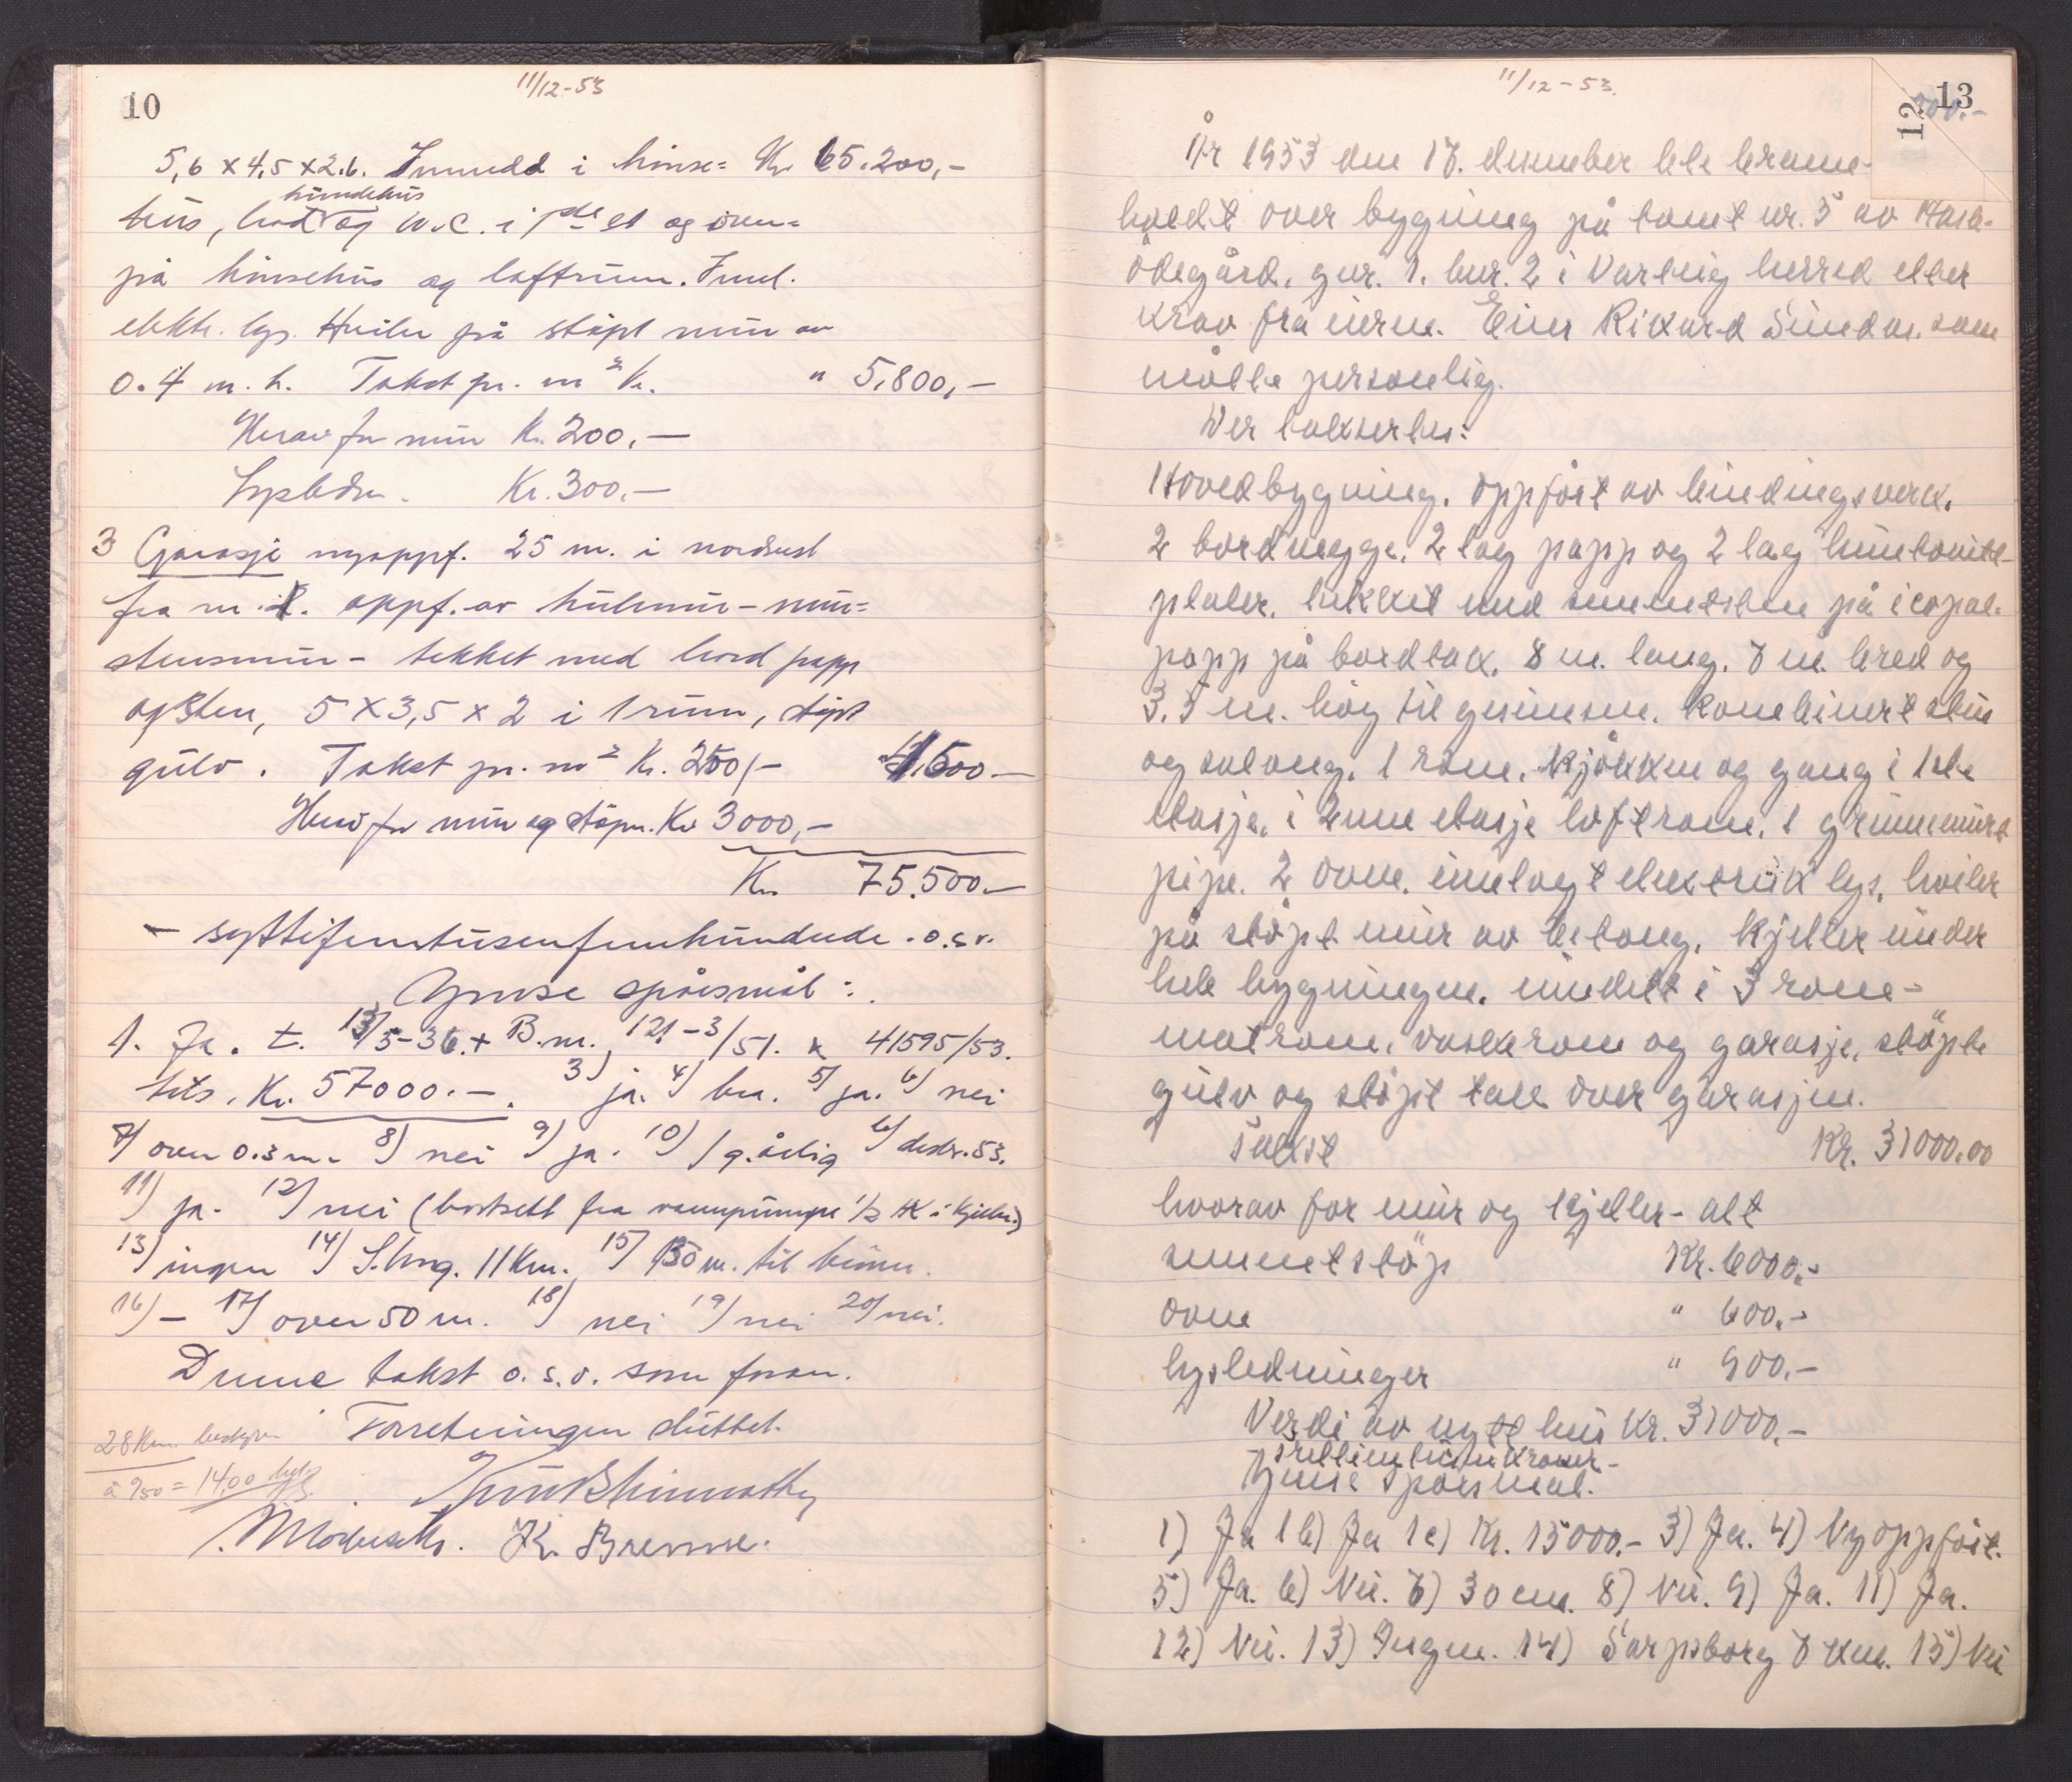 11/12-53
10
5,6 x 4,5 x 2.6. Innredd i hönse= Kr. 65.200,-
hundehus
hus, bod og W.C. i 1ste et og oven=
på hönsehus og loftrum. Innl.
elektr. lys. Hviler på stöpt mur av
0.4 m. h. Takst pr. m² Kr. " 5,800,-
Herav for mur Kr. 200,-
Lysledn. Kr. 300,-
3 Garasje nyoppf. 25 m. i nordvest
fra nr. 1. oppf. av hulmur - mur=
stensmur - tekket med bord papp
og sten, 5 x 3,5 x 2 i 1 rum, stöpt
gulv. Takst pr. m² Kr. 250,- 4.500-
Herav for mur og stöpn. Kr 3000,-
Kr. 75.500.-
- syttifemtusenfemhundrede. o.s.v.
Gjense spörsmål:
1. Ja. t. 13/5-36. + B.m. 121-3/51. 41595/53.
tils. Kr. 57000.-. 3) ja. 4) bra. 5) ja. 6) nei
7) over 0.3 m. 8) nei 9) ja. 10) 1 g. årlig desbr. 53.
11) ja. 12) nei (bortsett fra vannpumpe 1/2 HK i kjeller)
13) ingen 14) S.borg. 11 Km. 15) 150 m. til
16) - 17) over 50 m. 18) nei 19) nei 20) nei.
Denne takst o.s.v. som foran.
28 Km. Forretningen sluttet.
à 950 = 14,00
K. Bremse.
11/12-53.
12
13
År 1953 den 17. desember ble branne-
holdt over bygning på tomt nr. 5 av Hasle-
ödegård, gnr. 1. bnr. 2 i Varteig herred etter
krav fra eieren. Einer Rikard som
mötte personlig.
Der takserbes:
Hovedbygning. Oppföst av bindingsverk.
2 bordvegge. 2 lag papp og 2 lag huntonitt-
plater. tekket med sementsten på icopal-
papp på bordtak. 8 m. lang. 7 m. bred og
3.5 m. höy til gesimsen. Kombinert stue
og salong. 1 rom. Kjökken og gang i 1ste
etasje, i 2nne etasje loftrom. 1 grunnmurt
pipe. 2 ovne. innlagt elektrisk lys. hviler
på stöpt mur av betong. Kjeller under
hele bygningen. inndelt i 3 rom-
matrom. vaskrom og garasje. stöpte
gulv og stöpt tak over garasjen.
Takst Kr. 31000.00
hvorav for mur og kjeller- alt
sementstöp Kr. 6000.-
ovne " 600.-
lysledninger " 900.-
Verdi av nytt hus Kr. 31000.-
Gjense spörsmål.
1) Ja 1b) Ja 1c) Kr. 15000.- 3) Ja. 4) Nyoppföst.
5) Ja. 6) Nei. 7) 30 cm. 8) Nei. 9) Ja. 11) Ja.
12) Nei. 13) Ingen. 14) Sarpsborg 7 km. 15) Nei